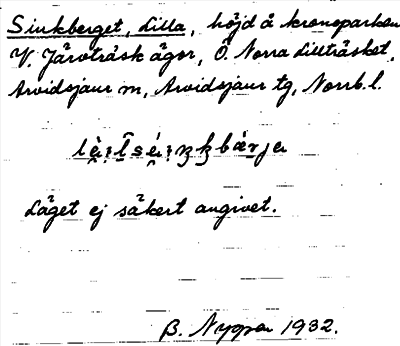 Sinkberget, Lilla, höjd å kronoparken
V. Järvträsk ägor, Ö. Norra Lillträsket,
Arvidsjaur sn, Arvidsjaur tg, Norrb. l.
Läget ej säkert angivet.
B. Nygren 1932.